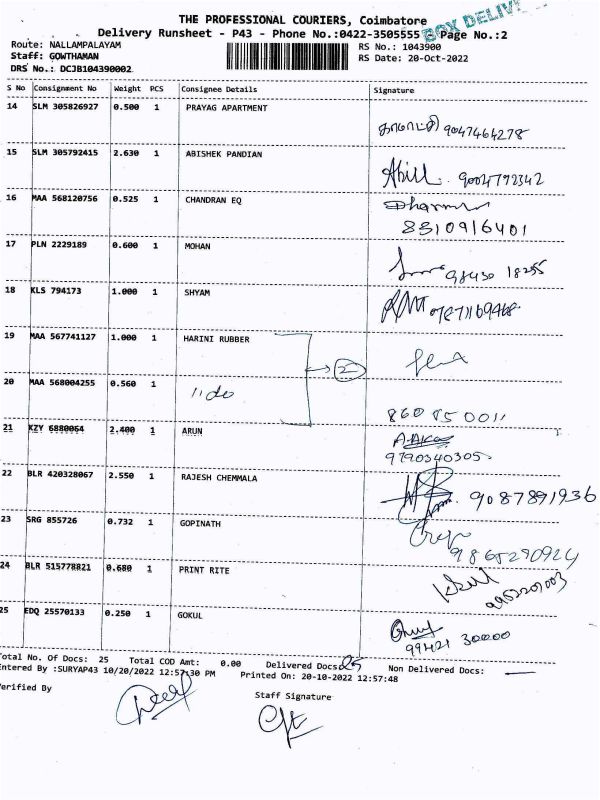 THE PROFESSIONAL COURIERS, Coimbatore
BOX DELIV
Delivery Runsheet - P43 - Phone No.:0422-3505555 Page No.:2
Route: NALLAMPALAYAM RS No.: 1043900
Staff: GOWTHAMAN RS Date: 20-Oct-2022
DRS No.: DCJB104390002
S No Consignment No Weight PCS Consignee Details Signature
14 SLM 305826927 0.500 1 PRAYAG APARTMENT
9047464278
15 SLM 305792415 2.630 1 ABISHEK PANDIAN
9004792342
16 MAA 568120756 0.525 1 CHANDRAN EQ
8310916401
17 PLN 2229189 0.600 1 MOHAN
98430 18255
18 KLS 794173 1.000 1 SHYAM
7871169468
19 MAA 567741127 1.000 1 HARINI RUBBER
2
20 MAA 568004255 0.560 1 11 do
860 85 0011
21 KZY 6880064 2.400 1 ARUN
9790340305
22 BLR 420328067 2.550 1 RAJESH CHEMMALA
9087891936
23 SRG 855726 0.732 1 GOPINATH
9865290924
24 BLR 515778821 0.680 1 PRINT RITE
9952207003
25 EDQ 25570133 0.250 1 GOKUL
99421 30000
Total No. Of Docs: 25 Total COD Amt: 0.00 Delivered Docs: 25 Non Delivered Docs: —
Entered By :SURYAP43 10/20/2022 12:57:30 PM Printed On: 20-10-2022 12:57:48
Verified By Staff Signature